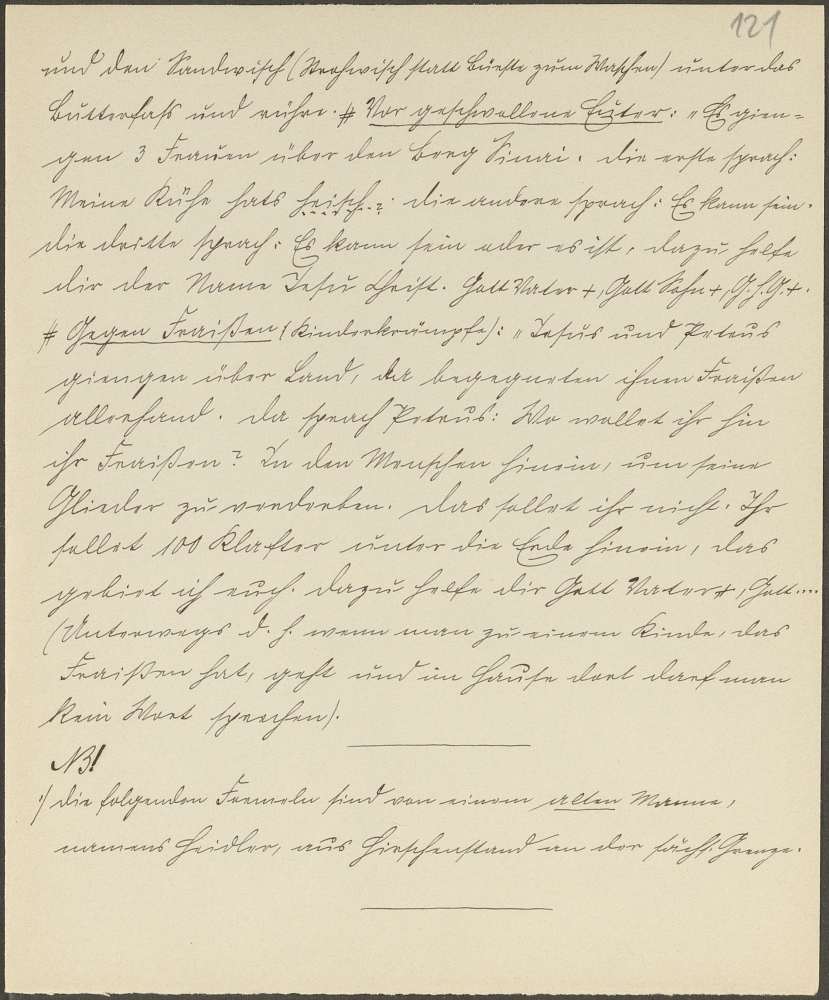 121
und den Sandwisch (Strohwisch statt Bürste zum Waschen) unter das
Butterfaß und rühre. # Vor geschwollene Euter: „Es gien=
gen 3 Frauen über den Berg Sinai. die erste sprach:
Meine Kühe hats heisch?; die andere sprach: Es kann sein.
die dritte sprach: Es kann sein oder es ist, dazu helfe
dir der Name Jesu Christ. Gott Vater +, Gott Sohn +, G. h. G. +.
# Gegen Fraißen (Kinderkrämpfe): „Jesus und Petrus
giengen über Land, da begegneten ihnen Fraißen
allerhand. da sprach Petrus: Wo wollet ihr hin
ihr Fraißen? In den Menschen hinein, um seine
Glieder zu verderben. Das sollet ihr nicht. Ihr
sollet 100 Klafter unter die Erde hinein, das
gebiet ich euch. Dazu helfe dir Gott Vater +, Gott....
(Unterwegs d. h. wenn man zu einem Kinde, das
Fraißen hat, geht und im Hause dort darf man
kein Wort sprechen).
NB!
·/ die folgenden Formeln sind von einem alten Manne,
namens Heidler, aus Hirschenstand an der sächs. Grenze.